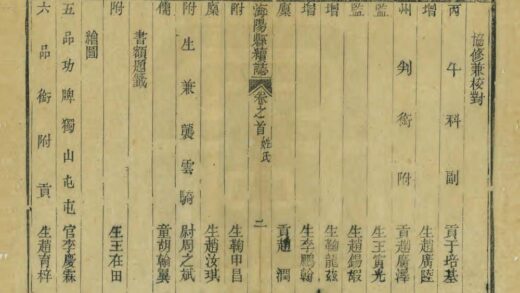 協修兼校對
丙午科副貢于培基
增生趙廣陞
州判銜附貢趙廣澤
監生王寅光
監生趙錫嘏
增生鞠龍茲
增生李鵬翰
廩貢趙潤
海陽縣續誌 卷之首 姓氏 二
附生鞠甲昌
廩生趙汝琪
附生兼襲雲騎尉周之斌
儒童胡翰翼
書額題籤
附生王在田
繪圖
五品功牌獨山屯屯官李慶霖
六品銜附貢生趙育梓